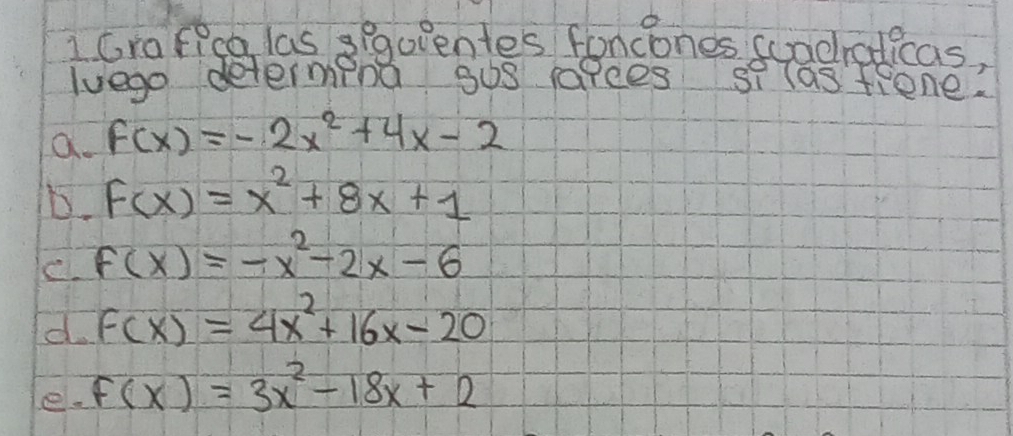 1. Grafica las siguientes funciones cuadraticas,
luego determina sus raices si las tiene.
a. F(x) = -2x² + 4x - 2
b. F(x) = x² + 8x + 1
c. F(x) = -x² - 2x - 6
d. F(x) = 4x² + 16x - 20
e. F(x) = 3x² - 18x + 2